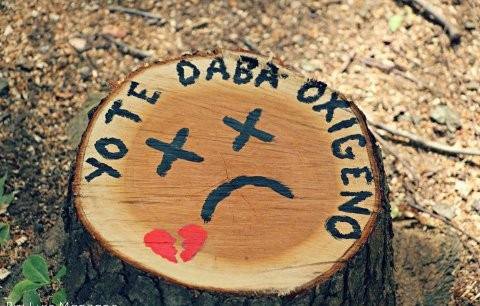 YO TE DABA OXIGENO